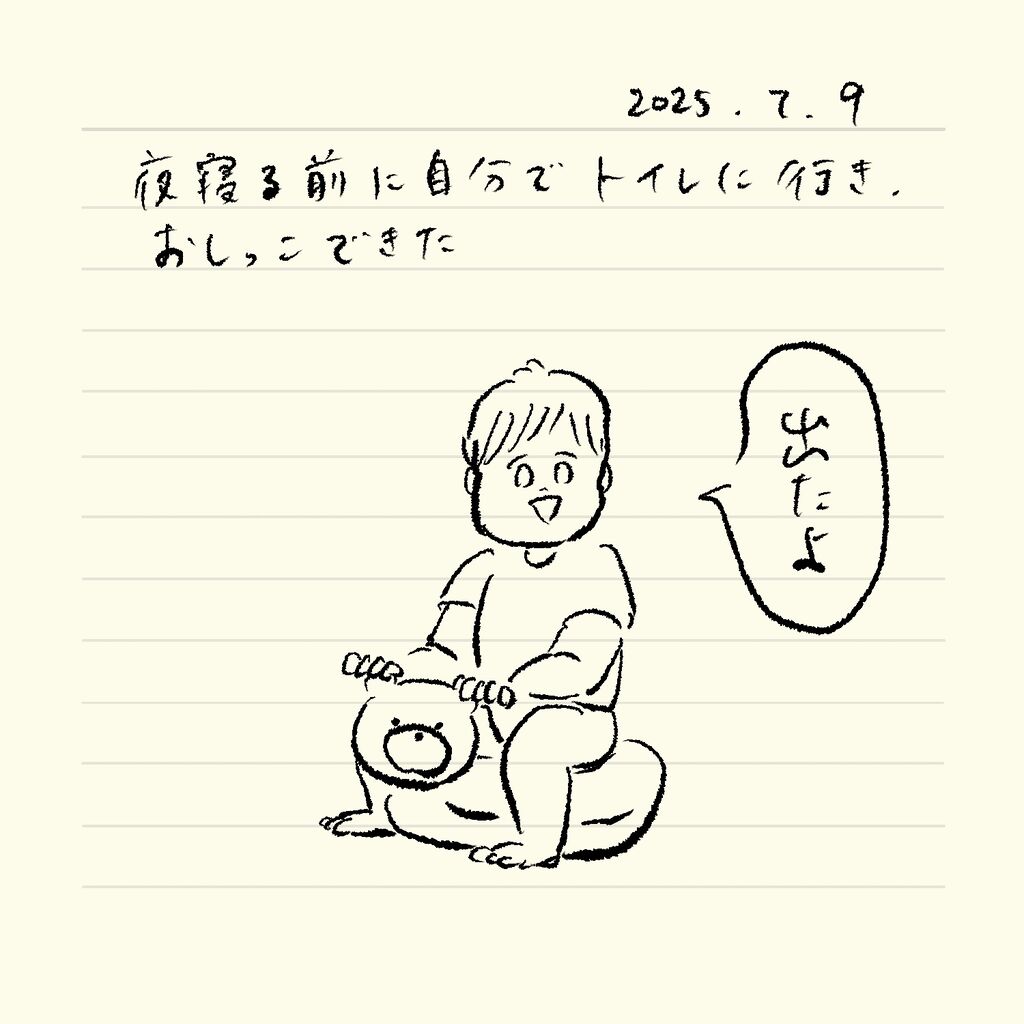 2025.7.9
夜寝る前に自分でトイレに行き.
おしっこできた
出たよ